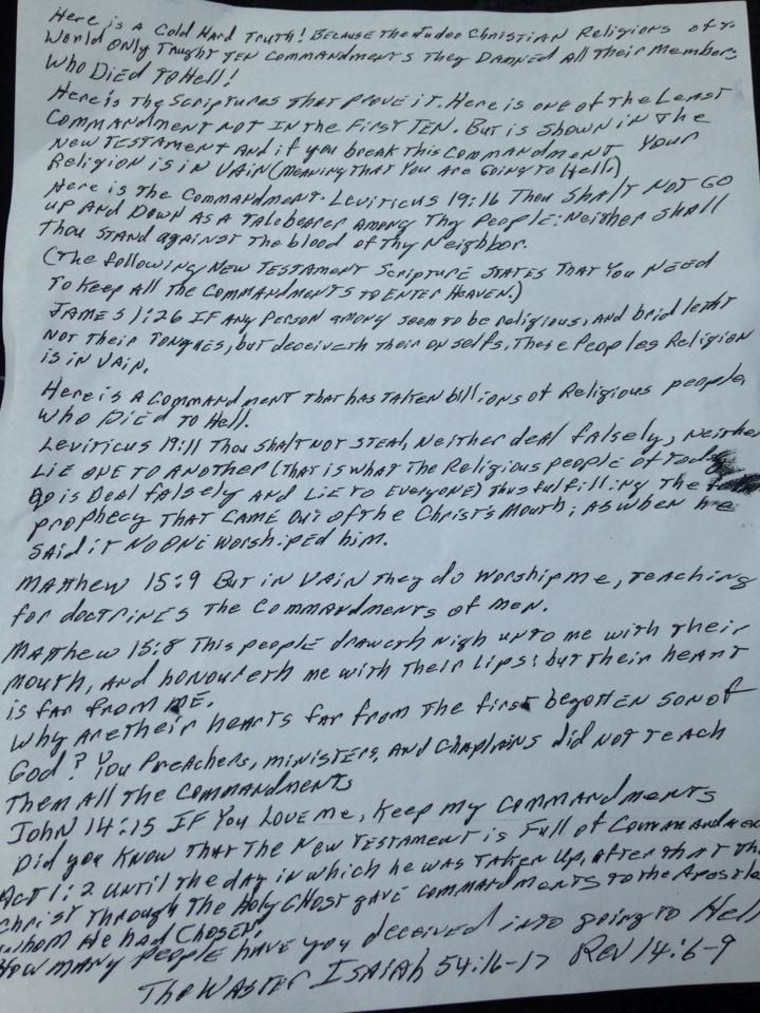 Here is a Cold Hard Truth! Because the Judeo Christian Religions of
World Only Taught Ten Commandments They Damned All Their Members
Who Died To Hell!
Here is The Scriptures That prove it. Here is one of The Least
Commandment not In the First Ten. But is shown in The
New Testament And if you break This Commandment Your
Religion is in Vain (meaning That You Are Going to Hell.)
Here is The Commandment. Leviticus 19:16 Thou Shalt Not Go
up And Down As A Talebearer Among Thy People: Neither Shall
Thou Stand against The blood of Thy Neighbor.
(The following New Testament Scripture States That You Need
To Keep All The Commandments To Enter Heaven.)
James 1:26 If Any Person among seem to be religious, And bridleth
Not Their Tongues, but deceiveth Their on selfs, These Peoples Religion
is in Vain.
Here is A Commandment That has Taken billions of Religious people
who Died To Hell.
Leviticus 19:11 Thou Shalt not Steal, Neither deal falsely, Neither
Lie one To Another (That is what The Religious people of Today
do is Deal falsely And Lie To Everyone) Thus fulfilling The
prophecy That Came Out of the Christ's Mouth; As when he
Said it No One Worshiped him.
Matthew 15:9 But in Vain They do Worship me, Teaching
for doctrines The Commandments of Men.
Matthew 15:8 This people draweth nigh unto me with Their
mouth, And honoureth me with Their Lips; but Their heart
is far from Me.
Why Are Their hearts far from The first begotten Son of
God? You Preachers, ministers, And Chaplains did not Teach
Them All The Commandments
John 14:15 If You Love Me, Keep my Commandments
Did you Know That The New Testament is Full of
Act 1:2 Until The day in which he was Taken Up, after That
Christ Through The Holy Ghost gave Commandments To the
whom He had Chosen.
How many People have you deceived into going to Hell
The Waster Isaiah 54:16-17 Rev 14:6-9